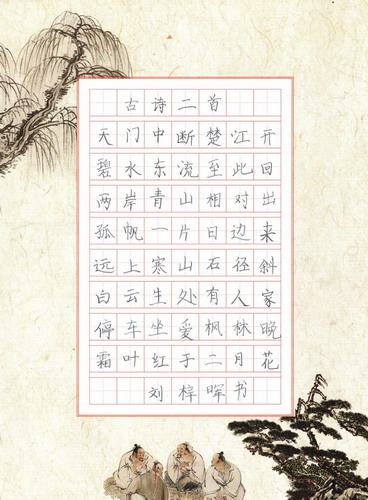 古诗二首
天门中断楚江开
碧水东流至此回
两岸青山相对出
孤帆一片日边来
远上寒山石径斜
白云生处有人家
停车坐爱枫林晚
霜叶红于二月花
刘梓晖书